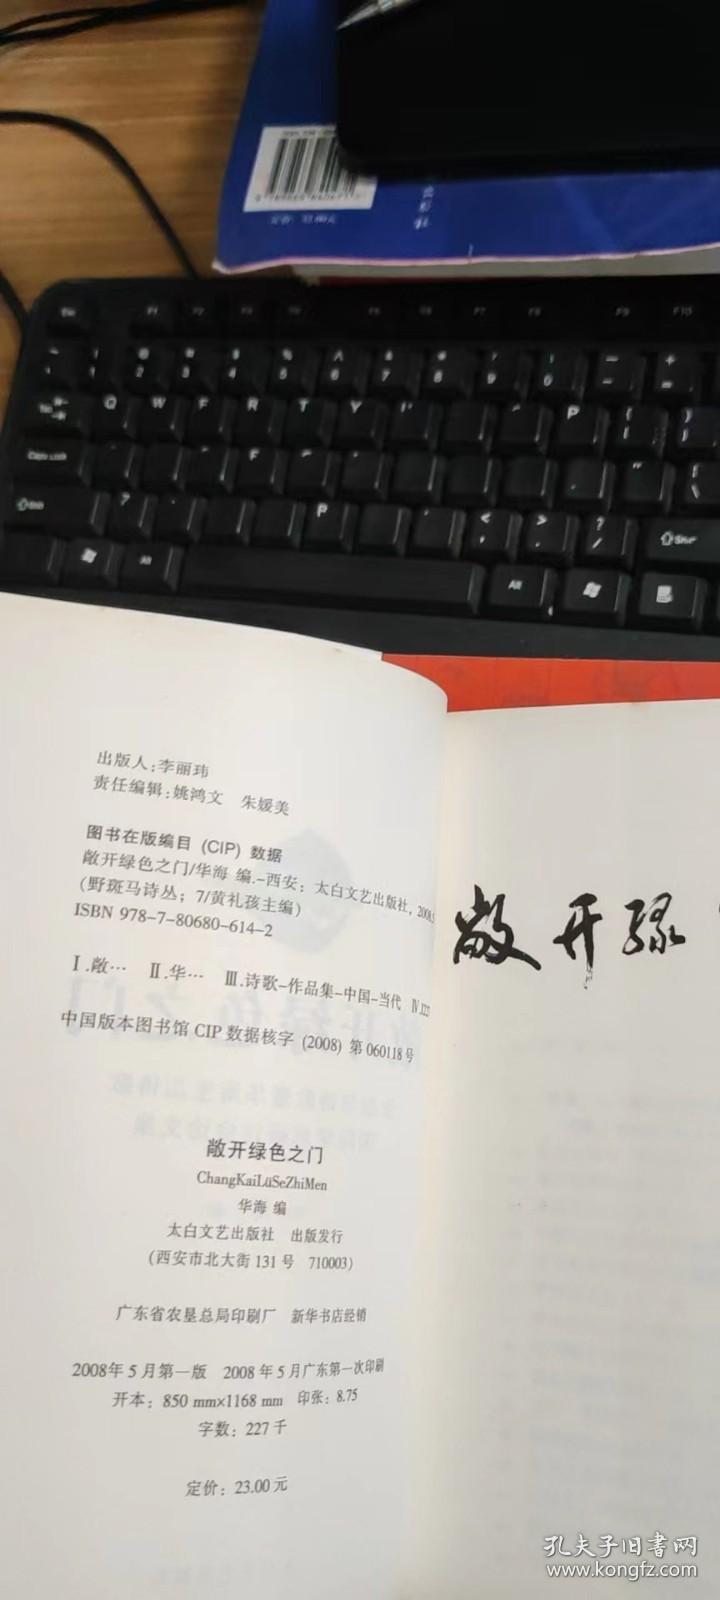 定价：32.00元
Esc F1 F2 F3 F4 F5 F6 F7 F8 F9 F10
Q W E R T Y P
Caps Lock F
Shift ? P < > ? Shift
Alt Alt
出版人：李丽玮
责任编辑：姚鸿文 朱媛美
图书在版编目 (CIP) 数据
敞开绿色之门/华海 编.-西安：太白文艺出版社，2008.5
(野斑马诗丛；7/黄礼孩主编)
ISBN 978-7-80680-614-2
Ⅰ.敞… Ⅱ.华… Ⅲ.诗歌-作品集-中国-当代 Ⅳ.I227
中国版本图书馆 CIP 数据核字 (2008) 第 060118 号
敞开绿色之门
ChangKaiLüSeZhiMen
华海 编
太白文艺出版社 出版发行
(西安市北大街 131 号 710003)
广东省农垦总局印刷厂 新华书店经销
2008年 5 月第一版 2008 年 5 月广东第一次印刷
开本：850 mm×1168 mm 印张：8.75
字数：227 千
定价：23.00 元
敞开绿
孔夫子旧书网
www.kongfz.com